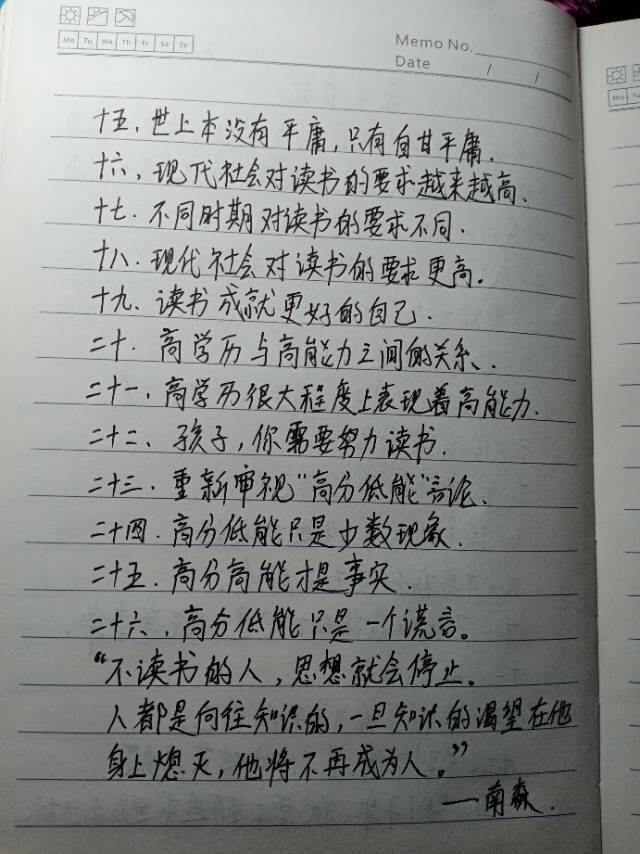 Mo Tu We Th Fr Sa Su
Memo No.
Date / /
十五、世上本没有平庸,只有自甘平庸.
十六、现代社会对读书的要求越来越高.
十七.不同时期对读书的要求不同.
十八.现代社会对读书的要求更高。
十九.读书成就更好的自己.
二十.高学历与高能力之间的关系.
二十一.高学历很大程度上表现着高能力.
二十二、孩子,你需要努力读书.
二十三.重新审视“高分低能”言论.
二十四.高分低能只是少数现象.
二十五.高分高能才是事实.
二十六.高分低能只是一个谎言。
“不读书的人,思想就会停止.
人都是向往知识的,一旦知识的渴望在他
身上熄灭,他将不再成为人。”
——南森.
Mo Tu